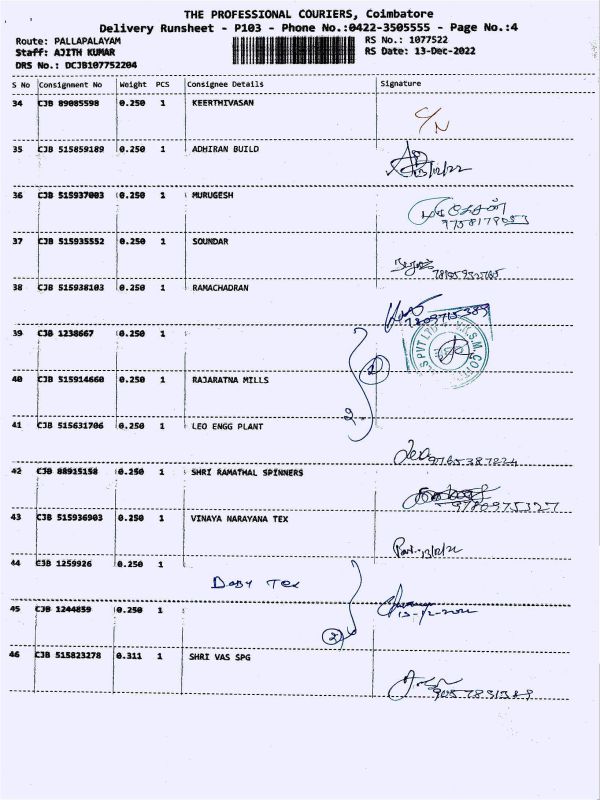 THE PROFESSIONAL COURIERS, Coimbatore
Delivery Runsheet - P103 - Phone No.:0422-3505555 - Page No.:4
Route: PALLAPALAYAM RS No.: 1077522
Staff: AJITH KUMAR RS Date: 13-Dec-2022
DRS No.: DCJB107752204
S No Consignment No Weight PCS Consignee Details Signature
34 CJB 89085598 0.250 1 KEERTHIVASAN C/N
35 CJB 515859189 0.250 1 ADHIRAN BUILD
36 CJB 515937003 0.250 1 MURUGESH முருகேசன்
37 CJB 515935552 0.250 1 SOUNDAR
38 CJB 515938103 0.250 1 RAMACHADRAN
39 CJB 1238667 0.250 1
40 CJB 515914660 0.250 1 RAJARATNA MILLS
2
41 CJB 515631706 0.250 1 LEO ENGG PLANT
Leo 9765387224
42 CJB 88915158 0.250 1 SHRI RAMATHAL SPINNERS
9780975327
43 CJB 515936903 0.250 1 VINAYA NARAYANA TEX
13/12/22
44 CJB 1259926 0.250 1
DABY Tex
45 CJB 1244859 0.250 1
2
46 CJB 515823278 0.311 1 SHRI VAS SPG